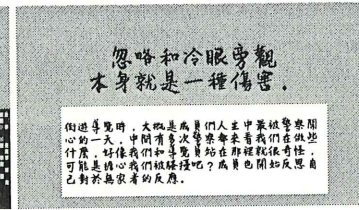 忽略和冷眼旁觀
本身就是一種傷害。
街遊導覽時，大概是成員們人生中最被警察關
心的一天，中間有多次警察都來看我們在做些
什麼，好像我們和導覽員站在那裡就很奇怪，
可能是擔心我們被騷擾吧？成員也開始反思自
己對於無家者的反應。